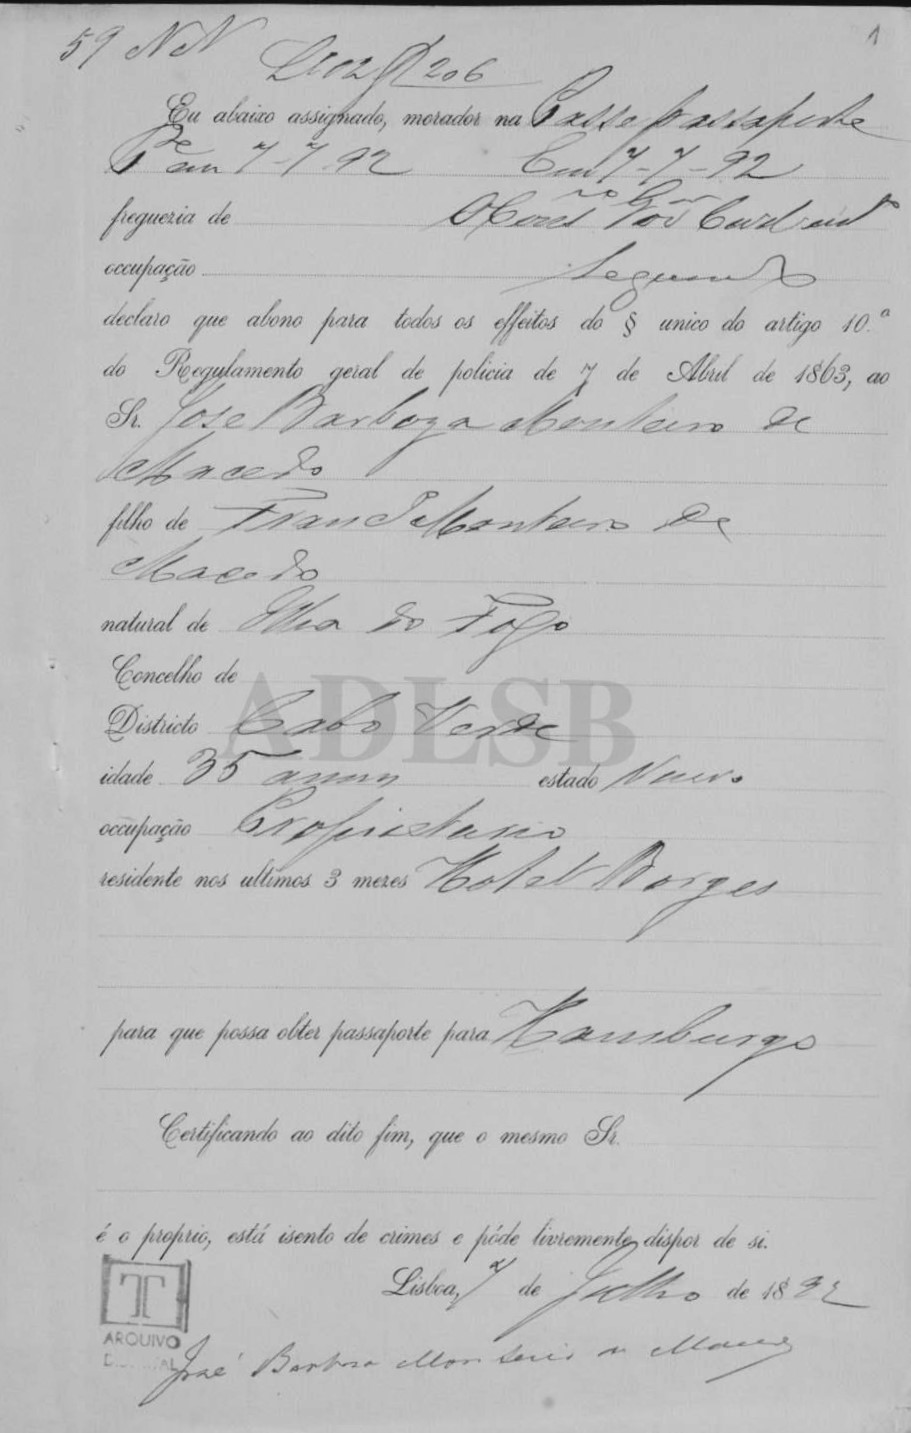 59 NN 1
206
Eu abaixo assignado, morador na Passe passaporte
em 7-7 92 Em 7-7-92
freguezia de
occupação Segundo
declaro que abono para todos os effeitos do § unico do artigo 10.º
do Regulamento geral de policia de 7 de Abril de 1863, ao
Sr. Jose Barboza Monteiro de
Macedo
filho de Franco Monteiro de
Macedo
natural de Ilha do Fogo
Concelho de
ADLSB
Districto Cabo Verde
idade 35 annos estado Viuvo
occupação Proprietario
residente nos ultimos 3 mezes Hotel Borges
para que possa obter passaporte para Hamburgo
Certificando ao dito fim, que o mesmo Sr.
é o proprio, está isento de crimes e póde livremente dispor de si.
Lisboa, 7 de Julho de 1892
TT
ARQUIVO
DISTRITAL
José Barboza Monteiro de Macedo